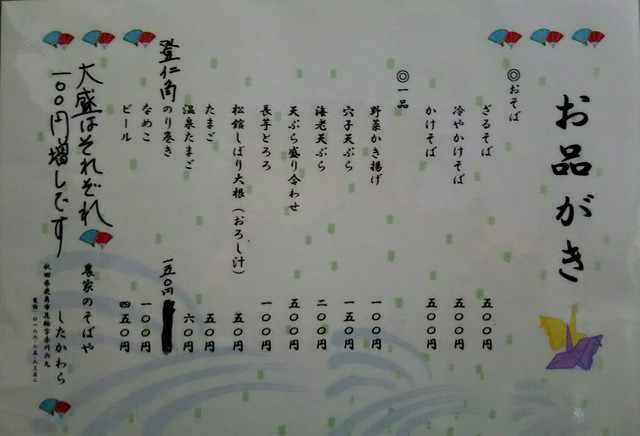 お品がき
◎おそば
ざるそば 五〇〇円
冷やかけそば 五〇〇円
かけそば 五〇〇円
◎一品
野菜かき揚げ 一〇〇円
穴子天ぷら 一五〇円
海老天ぷら 二〇〇円
天ぷら盛り合わせ 五〇〇円
長芋とろろ 一〇〇円
松館しぼり大根（おろし汁） 五〇円
たまご 五〇円
温泉たまご 六〇円
のり巻き 一五〇円
なめこ 一〇〇円
ビール 四五〇円
大盛はそれぞれ
一〇〇円増しです
農家のそばや
したかわら
秋田県鹿角市花輪字